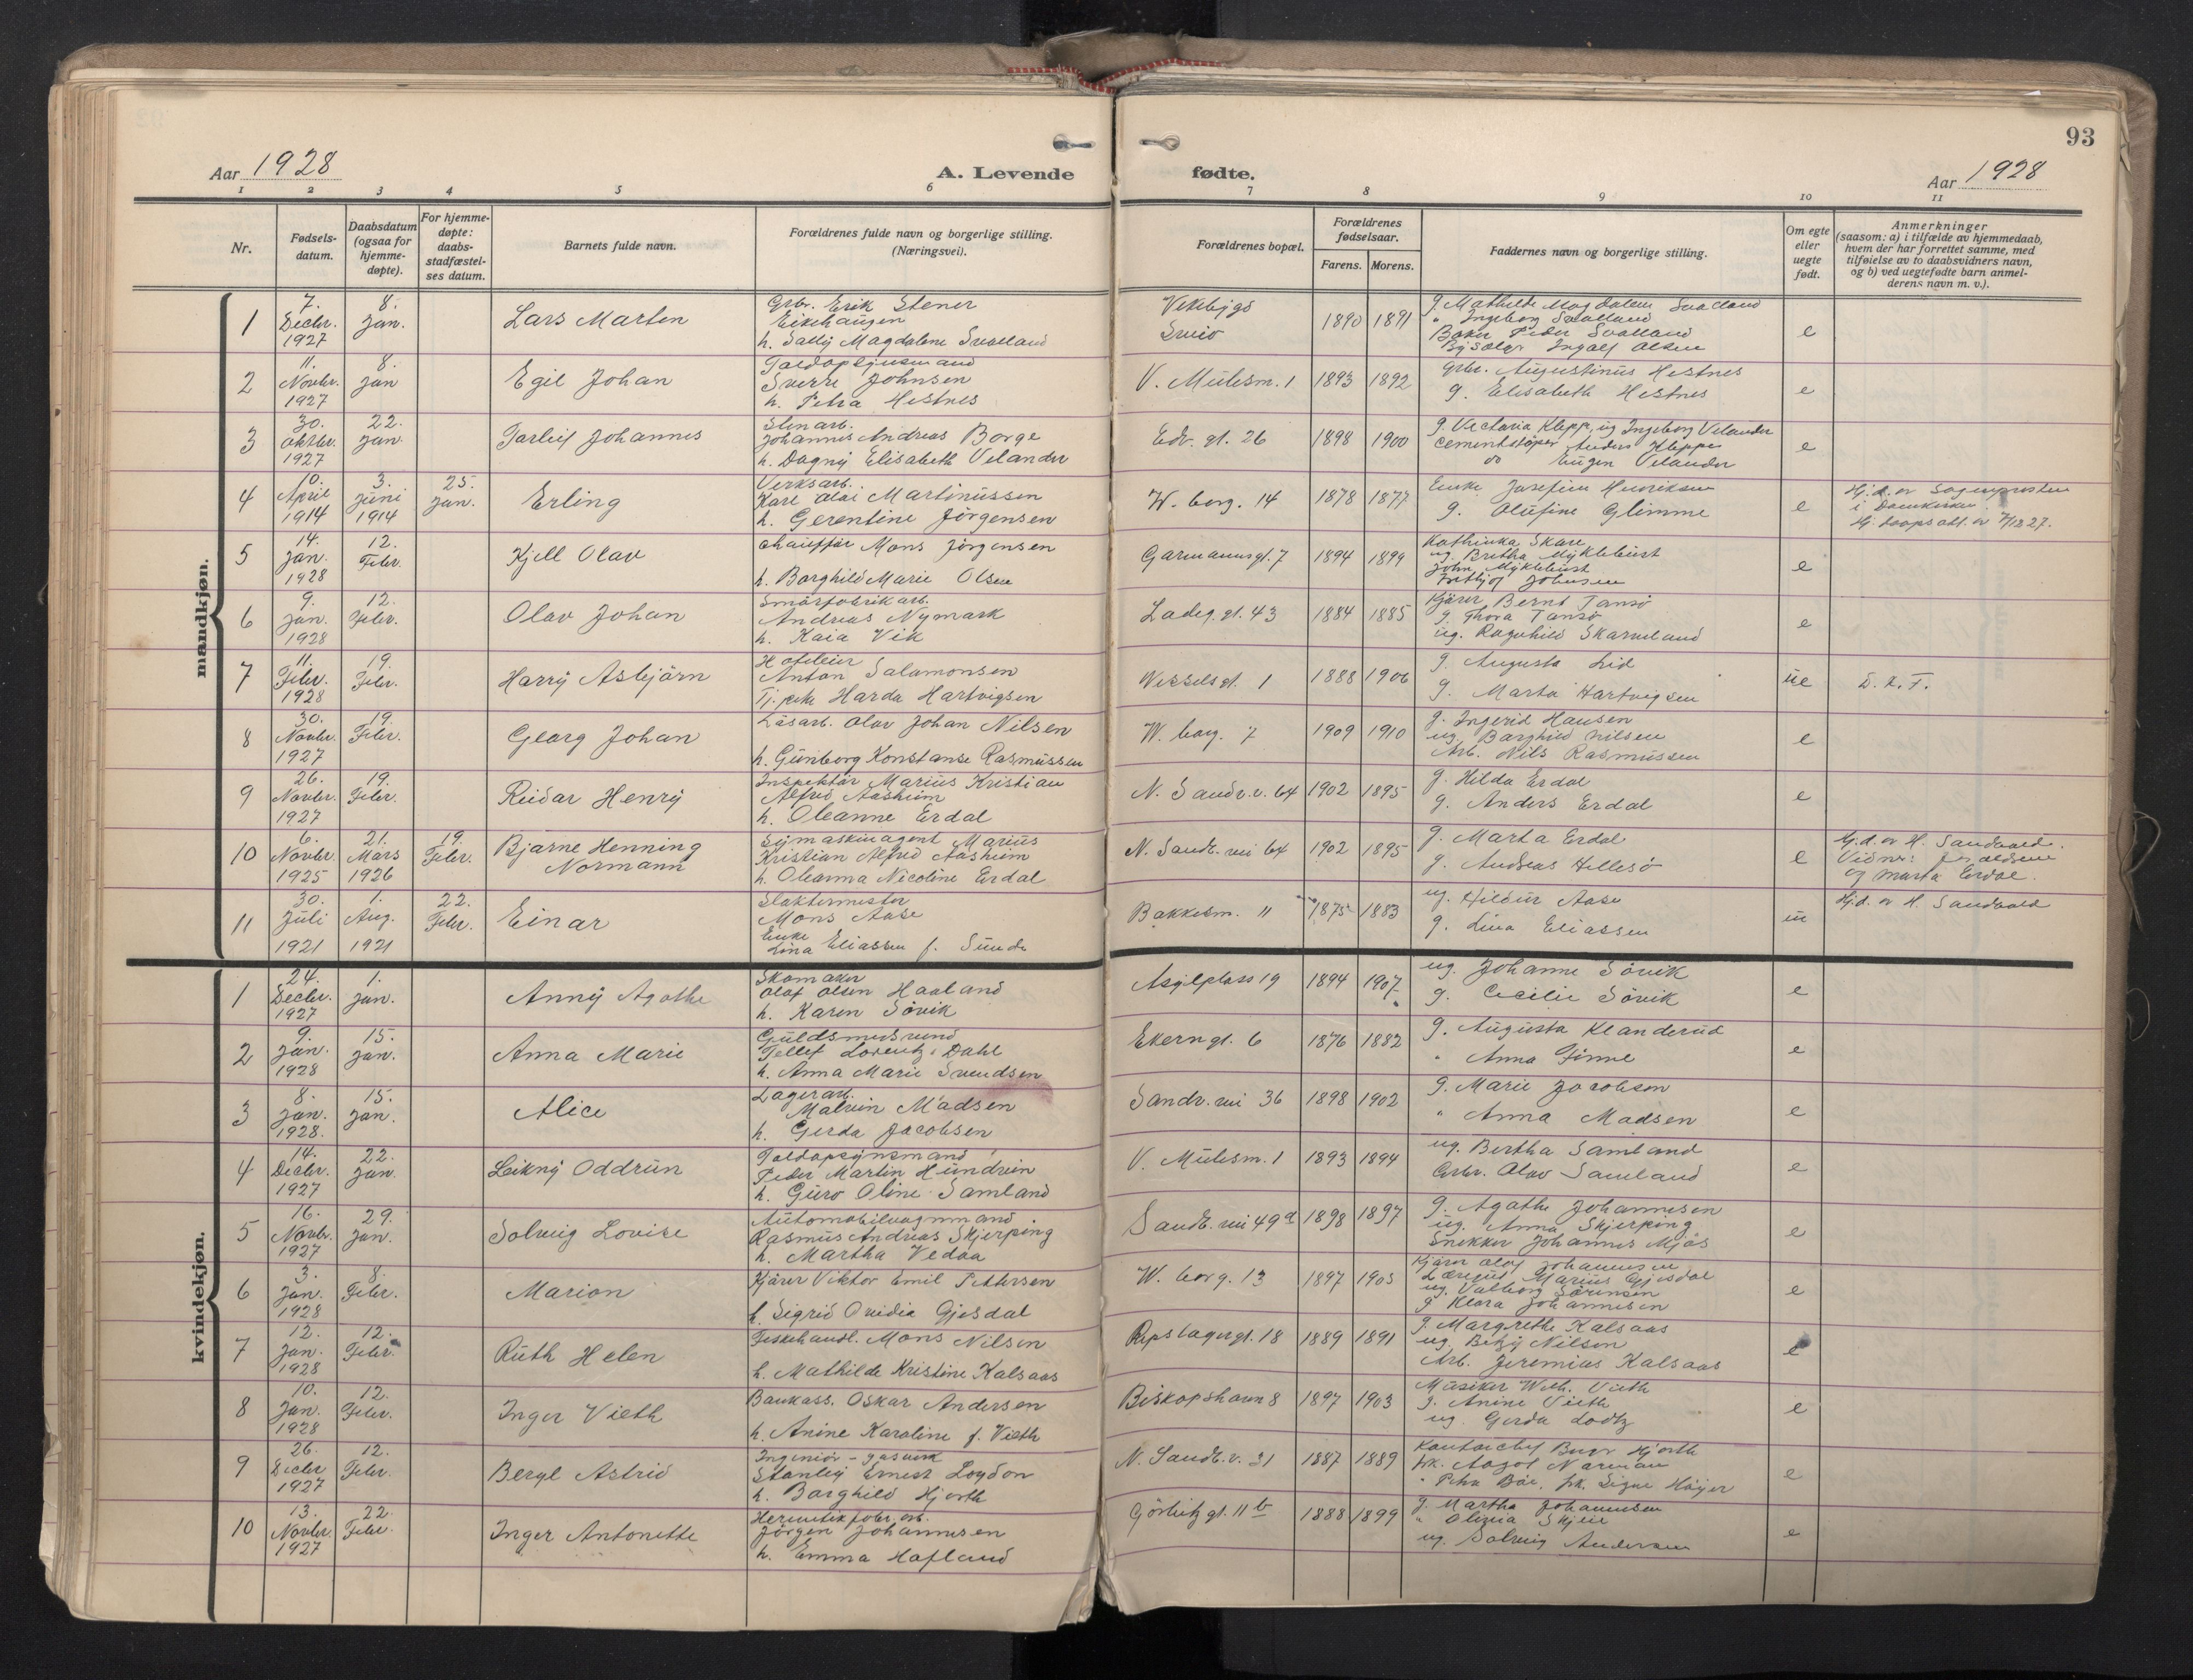 93
Aar 1928 A. Levende fødte. Aar 1928
1 2 3 4 5 6 7 8 9 10 11
Nr.
Fødsels-
datum.
Daabsdatum
(ogsaa for
hjemme-
døpte).
For hjemme-
døpte:
daabs-
stadfæstel-
ses datum.
Barnets fulde navn.
Forældrenes fulde navn og borgerlige stilling.
(Næringsvei).
Forældrenes bopæl.
Forældrenes
fødselsaar.
Farens. Morens.
Faddernes navn og borgerlige stilling.
Om egte
eller
uegte
født.
Anmerkninger
(saasom: a) i tilfælde av hjemmedaab,
hvem der har forrettet samme, med
tilføielse av to daabsvidners navn,
og b) ved uegtefødte barn anmel-
derens navn m. v.).
mandkjøn.
1
7.
Decbr.
1927
8.
Jan.
Lars Marten
Grbr. Erik Stener
Eikehaugen
h. Sally Magdalene Svalland
1890 1891
g. Mathilde Magdalene Svalland
" Ingeborg Svalland
Baker Peder Svalland
Ingolf Olsen
e
2
11.
Novbr.
1927
8.
Jan
Egil Johan
Toldopsynsmand
Sverre Johnsen
h. Petra Hestnes
V. Mulesm. 1
1893 1892
Grbr. Augustinus Hestnes
g. Elisabeth Hestnes
e
3
30.
Oktbr.
1927
22.
Jan.
Torleif Johannes
Stenarb.
Johannes Andreas Borge
h. Dagny Elisabeth Velander
Edv. gt. 26
1898 1900
g. Victoria Klepp, ug Ingeborg Velander
Cementstøper Anders Kleppe
do Eugen Velander
e
4
10.
April
1914
3.
Juni
1914
25.
Jan.
Erling
Verksarb.
Karl Olai Martinussen
h. Gerentine Jörgensen
W. borg. 14
1878 1877
Enke Josefine Henriksen
g. Olufine Glimme
e
Hj.d. av Sogneprosten
i Domkirken
5
14.
Jan.
1928
12.
Febr.
Kjell Olav
Chauffør Mons Jörgensen
h. Borghild Marie Olsen
Garmannsgt. 7
1894 1899
Kathinka Skare
ug. Bertha Myklebust
John Myklebust
Johnsen
e
6
9.
Jan.
1928
12.
Febr.
Olav Johan
Smörfabrikarb.
Andreas Nymark
h. Kaia Vik
Ladeg. gt. 43
1884 1885
Kjörer Bernt Tansö
g. Thora Tansö
ug. Ragnhild
e
7
11.
Febr.
1928
19.
Febr.
Harry Asbjörn
Hofeier
Anton Salamonsen
Tj. pike Harda Hartvigsen
Wesselsgt. 1
1888 1906
g. Augusta Lid
g. Marta Hartvigsen
ue
D. k. F.
8
30.
Novbr.
1927
19.
Febr.
Georg Johan
Løsarb. Olav Johan Nilsen
h. Gunborg Konstanse Rasmussen
W. borg. 7
1909 1910
g. Ingerid Hansen
ug. Borghild Nilsen
Arb. Nils Rasmussen
e
9
26.
Novbr.
1927
19.
Febr.
Reidar Henry
Inspektör Marius Kristian
Alfred Aasheim
h. Oleanne Erdal
N. Sandv. v. 64
1902 1895
g. Hilda Erdal
g. Anders Erdal
e
10
6.
Novbr.
1925
21.
Mars
1926
19.
Febr.
Bjarne Henning
Normann
Symaskinagent Marius
Kristian Alfred Aasheim
h. Oleanna Nicoline Erdal
N. Sandv. vei 64
1902 1895
g. Marta Erdal
g. Andreas Hellesö
e
Hj.d. av H. Sandvold.
Vidner:
og Marta Erdal.
11
30.
Juli
1921
1.
Aug.
1921
22.
Febr.
Einar
Slaktermester
Mons Aase
Enke
Lina Eliassen f. Sunde
Bakkesm. 11
1875 1883
ug. Hildur Aase
g. Lina Eliassen
u
Hj.d. av H. Sandvold
kvindekjøn.
1
24.
Decbr.
1927
1.
Jan.
Anny Agathe
Skomaker
Olaf Olsen Haaland
h. Karen Sövik
Asylplass 19
1894 1907
ug. Johanne Sövik
g. Cecilie Sövik
e
2
9.
Jan.
1928
15.
Jan.
Anna Marie
Guldsmedsvend
Tellef Lorentz Dahl
h. Anna Marie Svendsen
Ekerngt. 6
1876 1882
g. Augusta Klanderud
" Anna Finne
e
3
8.
Jan.
1928.
15.
Jan.
Alice
Lagerarb.
Malvin Madsen
h. Gerda Jacobsen
Sandv. vei 36
1898 1902
g. Marie Jacobsen
" Anna Madsen
e
4
14.
Decbr.
1927
22.
Jan.
Leikny Oddrun
Toldopsynsmand
Peder Martin Hundvin
h. Guro Oline Samland
V. Mulesm. 1
1893 1894
ug. Bertha Samland
Grbr. Olav Samland
e
5
16.
Novbr.
1927
29.
Jan.
Solveig Lovise
Automobilvognmand
Rasmus Andreas Skjerping
h. Martha Vedaa
Sandv. vei 49a
1898 1897
g. Agathe Johannesen
ug. Anna Skjerping
Snekker Johannes Mjös
e
6
3.
Jan.
1928
8.
Febr.
Marion
Kjörer Viktor Emil Pettersen
h. Sigrid Ovidia Gjesdal
W. borg. 13
1897 1903
Kjörer Olaf Johannesen
Marius Gjesdal
ug. Valborg Sörensen
g Klara Johannesen
e
7
12.
Jan.
1928
12.
Febr.
Ruth Helen
Fiskehandl. Mons Nilsen
h. Mathilde Kristine Kalsaas
Repslagergt. 18
1889 1891
g. Margrethe Kalsaas
ug. Betzy Nilsen
Arb. Jeremias Kalsaas
e
8
10.
Jan.
1928
12.
Febr.
Inger Vieth
Bankass. Oskar Andersen
h. Anine Karoline f. Vieth
Biskopshavn 8
1897 1903
Musiker Wilh. Vieth
g. Anine Vieth
ug. Gerda Lodtz
e
9
26.
Decbr
1927
12.
Febr.
Beryl Astrid
Ingeniör - gasverk
Stanley Ernest Loydon
h. Borghild Hjorth
N. Sandv. v. 21
1887 1889
Kontorchef Hjorth
frk. Aagot Norman
" Petra Böe, frk. Signe Höyer
e
10
13.
Novbr.
1927
22.
Febr.
Inger Antonette
Hermetikfabr. arb.
Jörgen Johannesen
h. Emma Hafland
Görbitzgt. 11 b
1888 1899
g. Martha Johannesen
" Olivia Skjeie
ug. Solveig Andersen
e